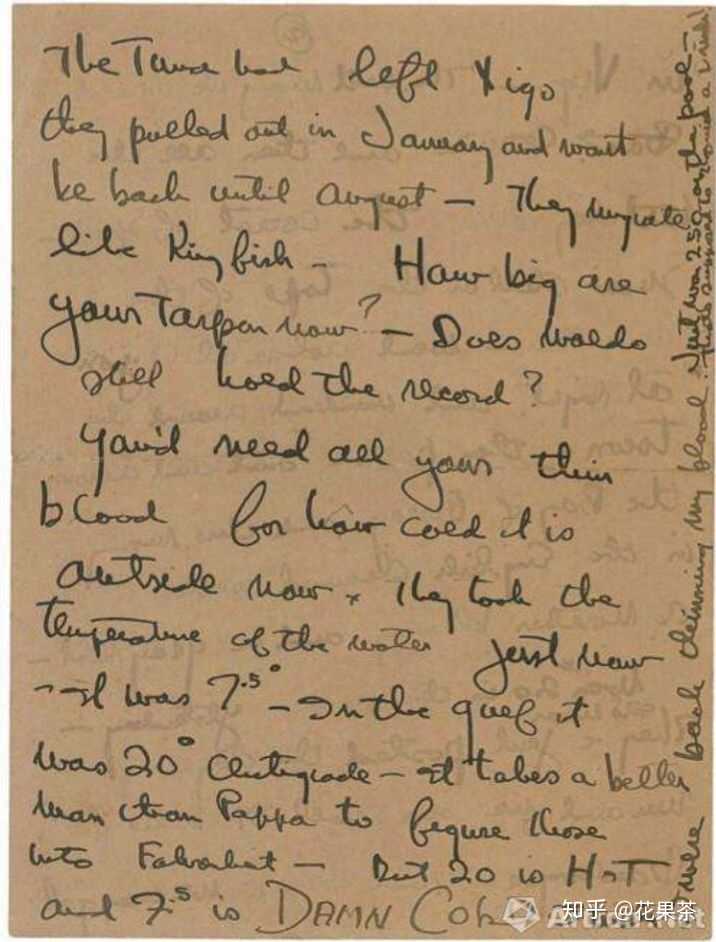 The Tuna had left Vigo
they pulled out in January and wont
be back until August — They migrate
like Kingfish — How big are
your Tarpon now? — Does Waldo
still hold the record?
You'd need all your thin
blood for how cold it is
outside now. They took the
temperature of the water just now
— It was 7.5° — In the gulf it
was 20° Centigrade — It takes a better
man than Pappa to figure those
into Fahrenheit — But 20 is HOT
and 7.5 is DAMN COLD
were back thinning my blood. Just won 250 on the pool —
知乎 @花果茶